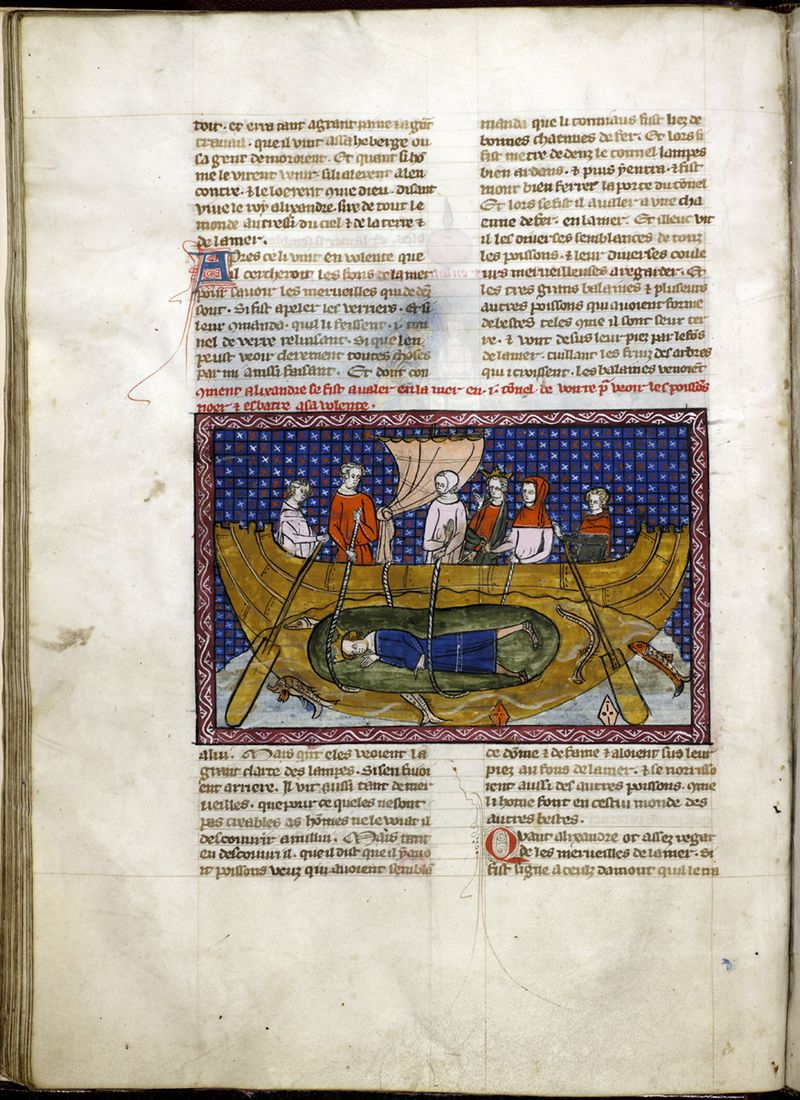 toit · et erra tant a grant paine & a grāt
trauail · que il vint a sa heberge ou
sa gent demoroient · Et quant si ho
me le virent venir · si li alerent alen
contre · & le loerent 9me dieu · disant
viue le roy alixandre · sire de tout le
monde autressi du ciel & de la terre &
de la mer ·
Apres ce li vint en volente que
il cercheroit les fons de la mer
pour sauoir les merueilles qui dedēz
sont · Si fist apeler les verriers · Et si
leur 9manda · quil li feissent · i · ton
nel de verre reluisant · Si que len
peust veoir clerement toutes choses
par mi ausi faisant · Et dont con
manda que li tonniaus fust liez de
bonnes chaenes de fer · Et lors si
fist metre dedenz le tonnel lampes
bien ardans · & puis y entra · & fist
mont bien ferrer la porte du tōnel
Et lors se fist il aualer a vne cha
enne de fer · en la mer · Et illeuc vit
il les diuerses semblances de touz
les poissons · & leur diuerses coule
urs merueilleuses a regarder · Et
les tres grans balaines & plusieurs
autres poissons qui auoient forme
de bestes teles 9me il sont seur ter
re · & vont desus leur piez par le fōs
de la mer · cuillant les fruiz des arbres
qui i croissent · Les balaines venoiēt
9ment alixandre se fist aualer en la mer en · i · tōnel · de voirre p̄ veoir les poissōs
noer & esbatre a sa volente ·
a lui · Mais qnt eles veoient la
grant clarte des lampes · Si sen fuioi
ent arriere · Il vit aussi tant de mer
ueilles · que pour ce queles ne sont
pas creables as hōmes ne le voult il
descouurir a nullui · Mais tant
en descouuri il · que il dist que il y auo
it poissons veuz qui auoient semblā
ce dōme & de fame & aloient sus leur
piez au fons de la mer · & se norrisso
ient aussi des autres poissons · 9me
li home font en cestui monde des
autres bestes ·
Quant alixandre ot assez regar
de les merueilles de la mer · Si
fist signe a ceulz damont quil le tra